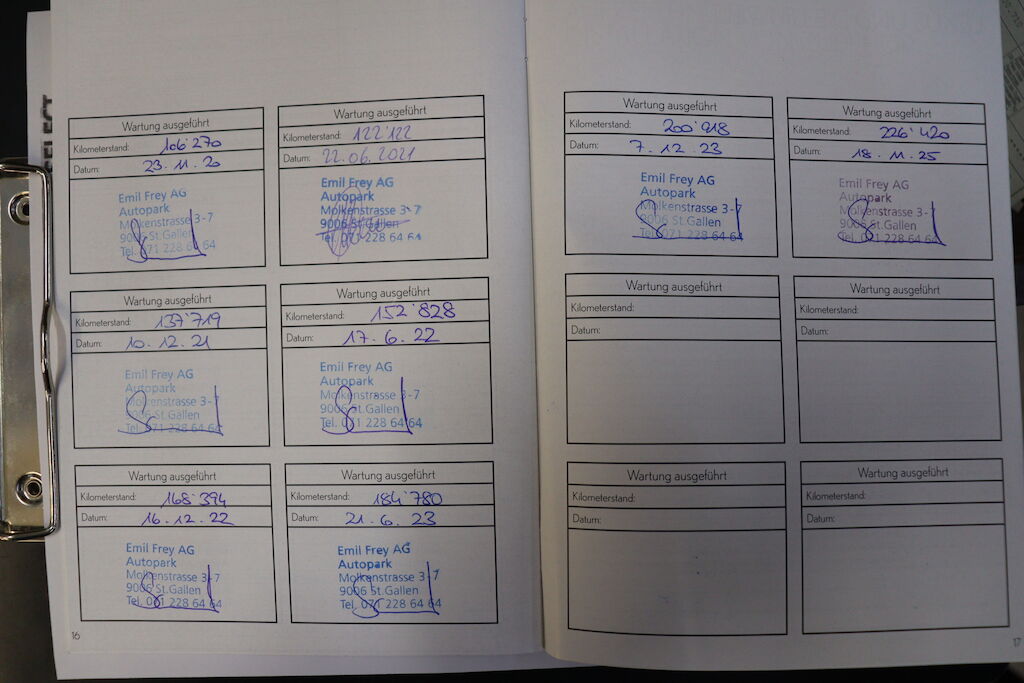 Wartung ausgeführt
Kilometerstand: 106'270
Datum: 23.11.20
Emil Frey AG
Autopark
Molkenstrasse 3-7
9006 St.Gallen
Tel. 071 228 64 64
Wartung ausgeführt
Kilometerstand: 122'122
Datum: 22.06.2021
Emil Frey AG
Autopark
Molkenstrasse 3-7
9006 St.Gallen
Tel. 071 228 64 64
Wartung ausgeführt
Kilometerstand: 137'719
Datum: 10.12.21
Emil Frey AG
Autopark
Molkenstrasse 3-7
9006 St.Gallen
Tel. 071 228 64 64
Wartung ausgeführt
Kilometerstand: 152'828
Datum: 17.6.22
Emil Frey AG
Autopark
Molkenstrasse 3-7
9006 St.Gallen
Tel. 071 228 64 64
Wartung ausgeführt
Kilometerstand: 168'394
Datum: 16.12.22
Emil Frey AG
Autopark
Molkenstrasse 3-7
9006 St.Gallen
Tel. 071 228 64 64
Wartung ausgeführt
Kilometerstand: 184'780
Datum: 21.6.23
Emil Frey AG
Autopark
Molkenstrasse 3-7
9006 St.Gallen
Tel. 071 228 64 64
16
Wartung ausgeführt
Kilometerstand: 200'918
Datum: 7.12.23
Emil Frey AG
Autopark
Molkenstrasse 3-7
9006 St.Gallen
Tel. 071 228 64 64
Wartung ausgeführt
Kilometerstand: 226'420
Datum: 18.11.25
Emil Frey AG
Autopark
Molkenstrasse 3-7
9006 St.Gallen
Tel. 071 228 64 64
Wartung ausgeführt
Kilometerstand:
Datum:
Wartung ausgeführt
Kilometerstand:
Datum:
Wartung ausgeführt
Kilometerstand:
Datum:
Wartung ausgeführt
Kilometerstand:
Datum:
17